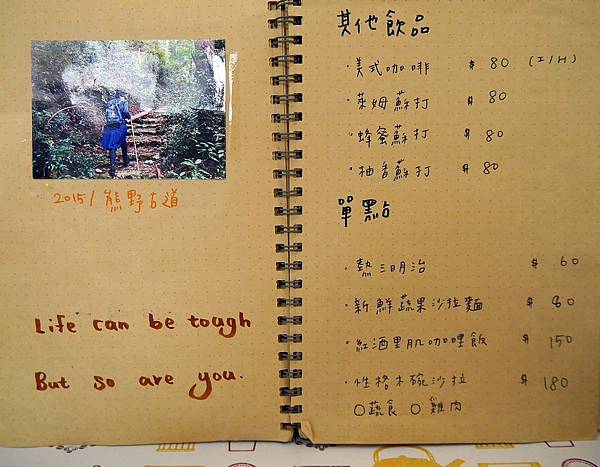 2015/ 熊野古道
Life can be tough
But so are you.
其他飲品
·美式咖啡 $80 (I/H)
·萊姆蘇打 $80
·蜂蜜蘇打 $80
·柚香蘇打 $80
單點
·熱三明治 $60
·新鮮蔬果沙拉麵 $80
·紅酒里肌咖哩飯 $150
·性格木碗沙拉 $180
○蔬食 ○雞肉